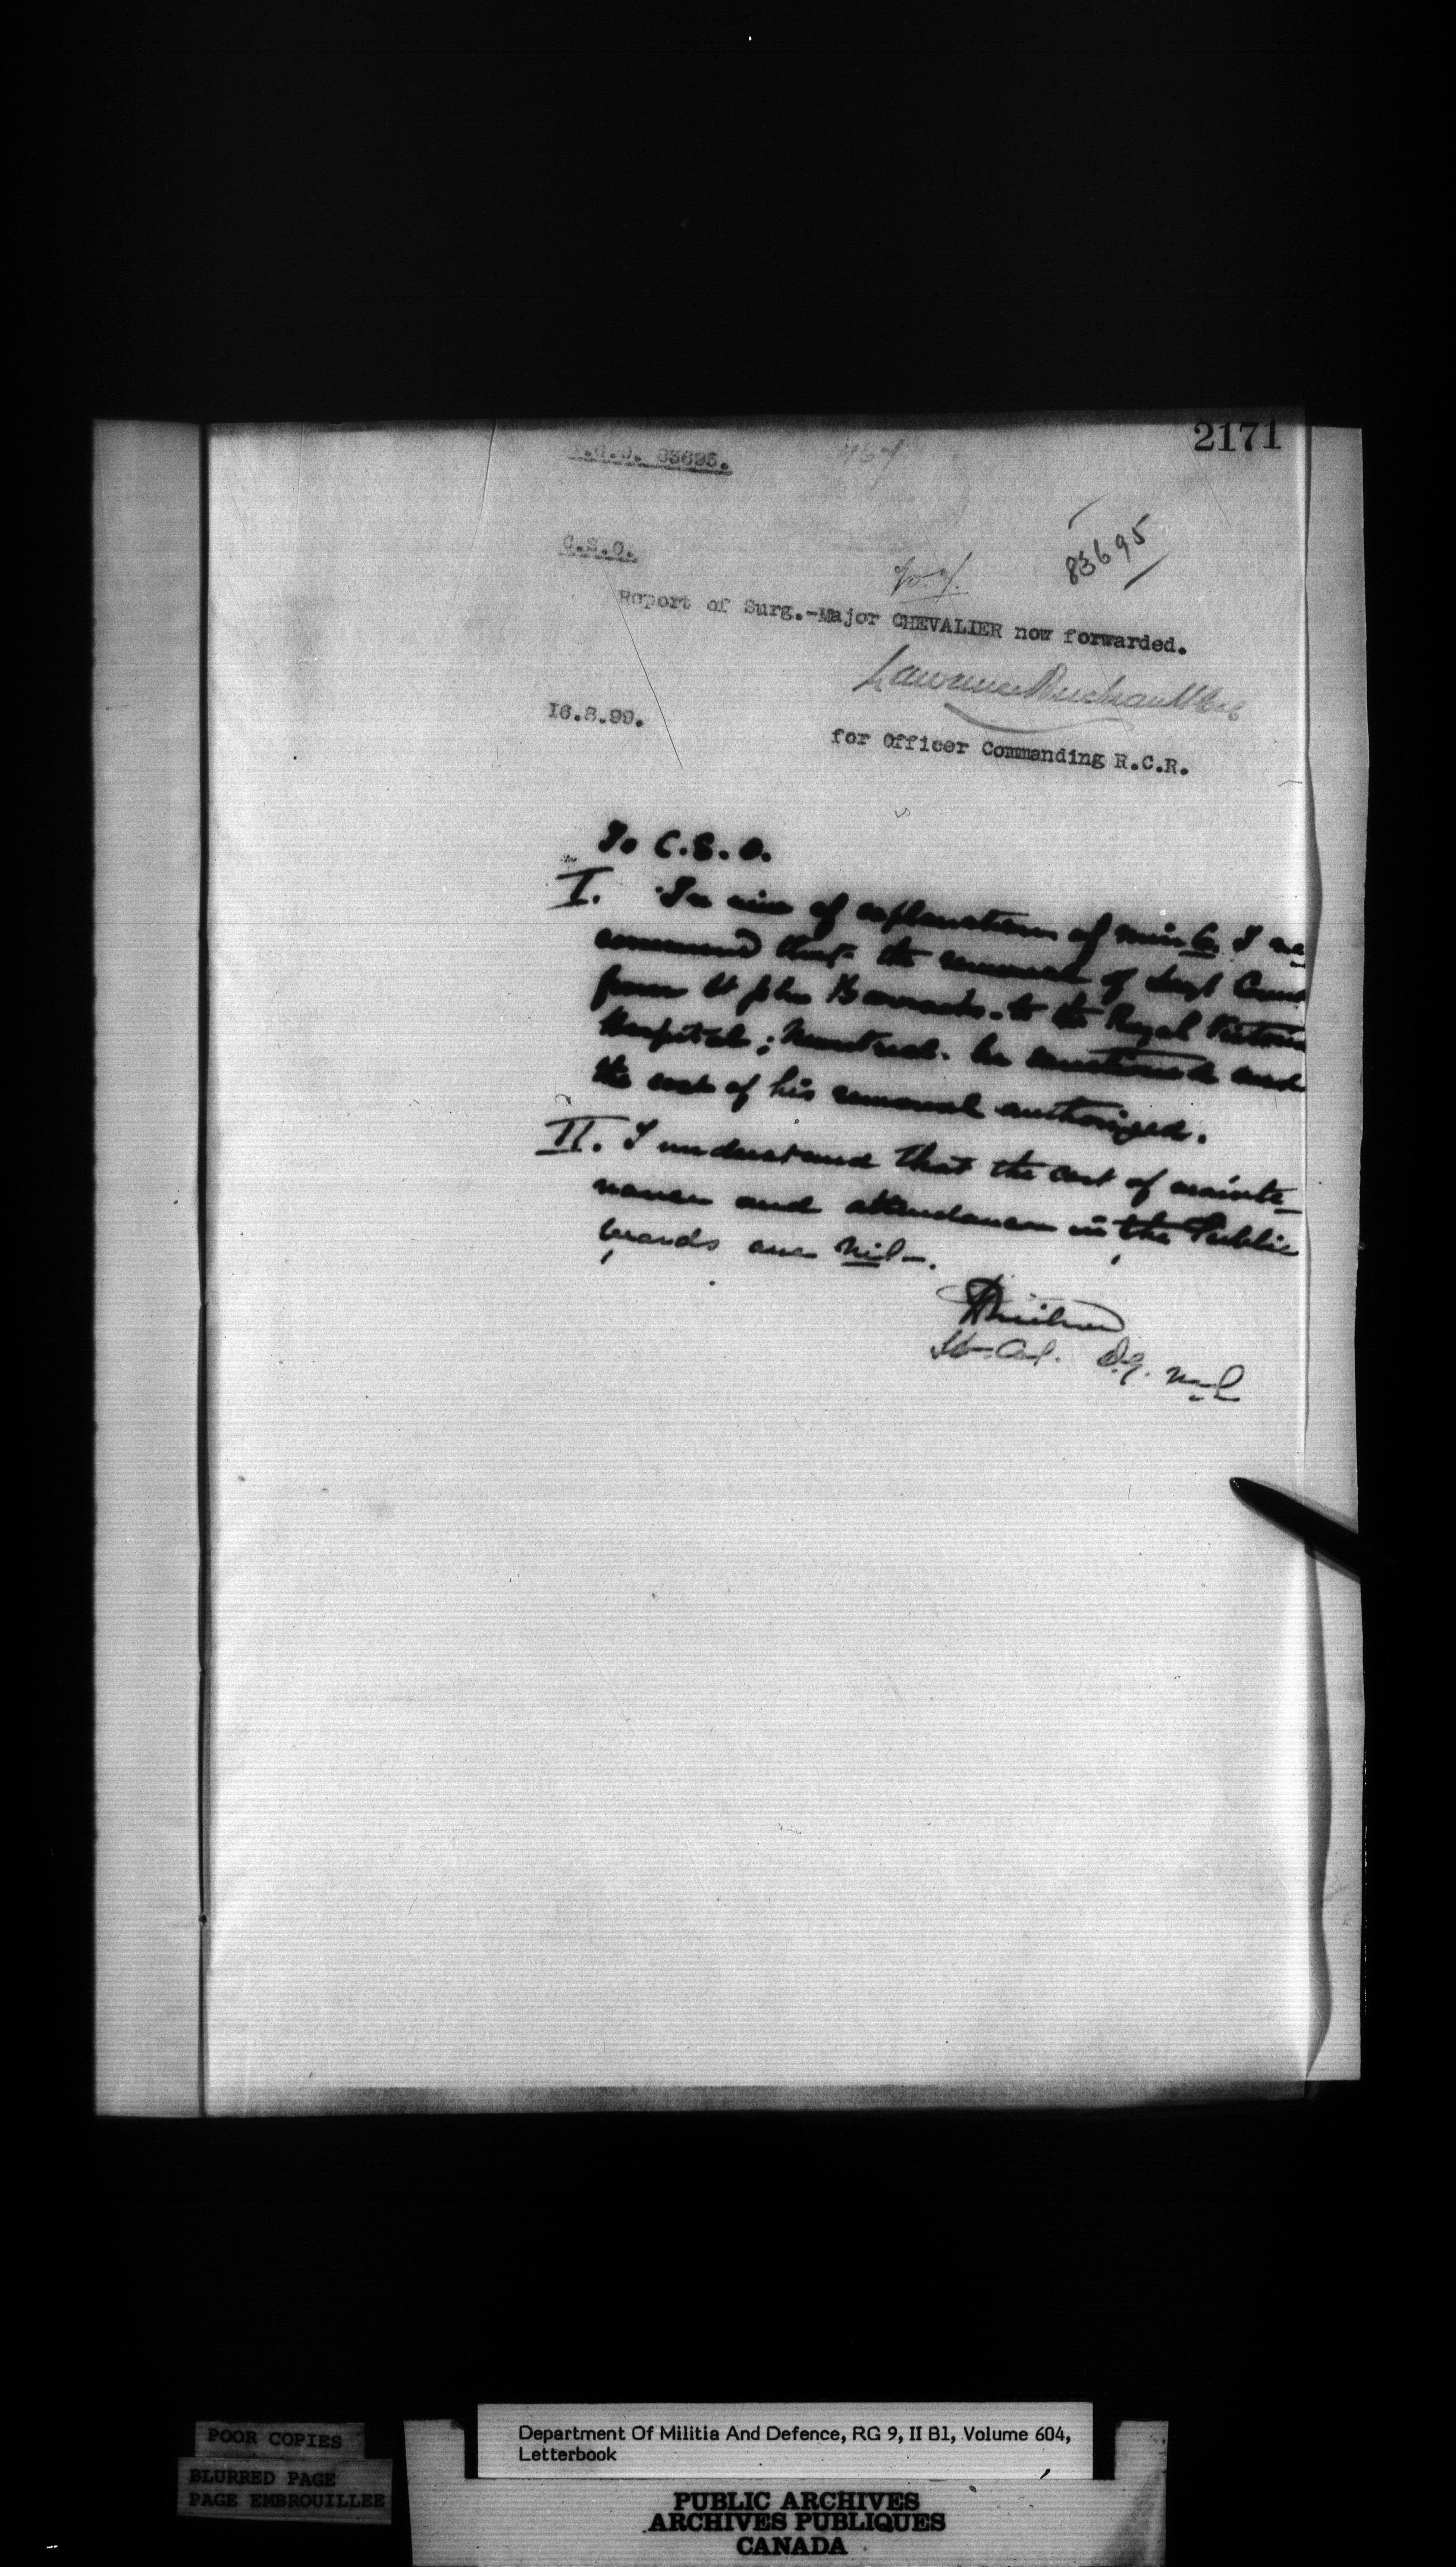 2171
83695.
C.S.O.
83695
Report of Surg.-Major CHEVALIER now forwarded.
Lawrence Buchan
16.8.99.
for Officer Commanding R.C.R.
To C.S.O.
I. In view of explanation of min 6. I re-
commend that the removal of Sergt
from St John Barracks. to the Royal Victoria
Hospital; Montreal. be sanctioned and
the cost of his removal authorized.
II. I understand that the cost of mainte-
nance and attendance in the Public
wards are nil-.
Lt-Col. D.G.
POOR COPIES
BLURRED PAGE
PAGE EMBROUILLEE
Department Of Militia And Defence, RG 9, II B1, Volume 604,
Letterbook
PUBLIC ARCHIVES
ARCHIVES PUBLIQUES
CANADA